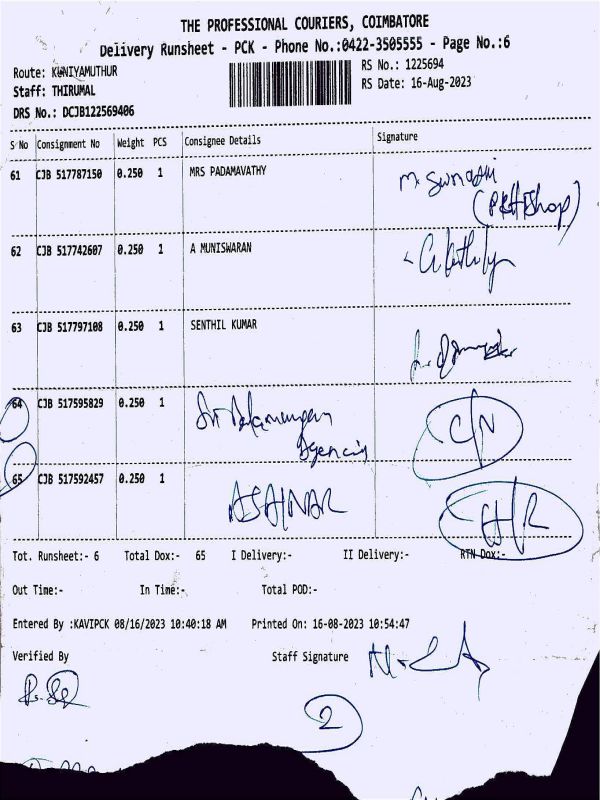 THE PROFESSIONAL COURIERS, COIMBATORE
Delivery Runsheet - PCK - Phone No.:0422-3505555 - Page No.:6
Route: KUNIYAMUTHUR
RS No.: 1225694
Staff: THIRUMAL
RS Date: 16-Aug-2023
DRS No.: DCJB122569406
S No Consignment No Weight PCS Consignee Details Signature
61 CJB 517787150 0.250 1 MRS PADAMAVATHY
62 CJB 517742607 0.250 1 A MUNISWARAN
63 CJB 517797108 0.250 1 SENTHIL KUMAR
64 CJB 517595829 0.250 1 C/N
Agencies
65 CJB 517592457 0.250 1
Tot. Runsheet:- 6 Total Dox:- 65 I Delivery:- II Delivery:- RTN Dox:-
Out Time:- In Time:- Total POD:-
Entered By :KAVIPCK 08/16/2023 10:40:18 AM Printed On: 16-08-2023 10:54:47
Verified By Staff Signature
2